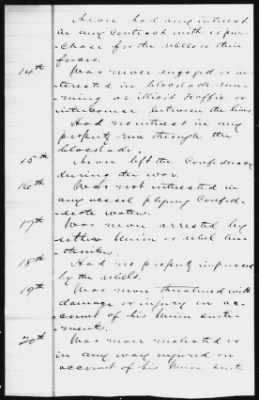 never had any interest
in any contract with or pur-
chase for the rebels or their
forces.
14th Was never engaged or in-
terested in blockade run-
ning or illicit traffic or
intercourse between the lines
Had no interest in any
property run through the
blockade.
15th Never left the Confederacy
during the war.
16th Was not interested in
any vessel plying Confed-
erate waters.
17th Was never arrested by
either Union or rebel Au-
thorities.
18th Had no property impressed
by the rebels.
19th Was never threatened with
damage or injury on ac-
count of his Union senti-
ments.
20th Was never molested or
in any way injured on
account of his Union senti-